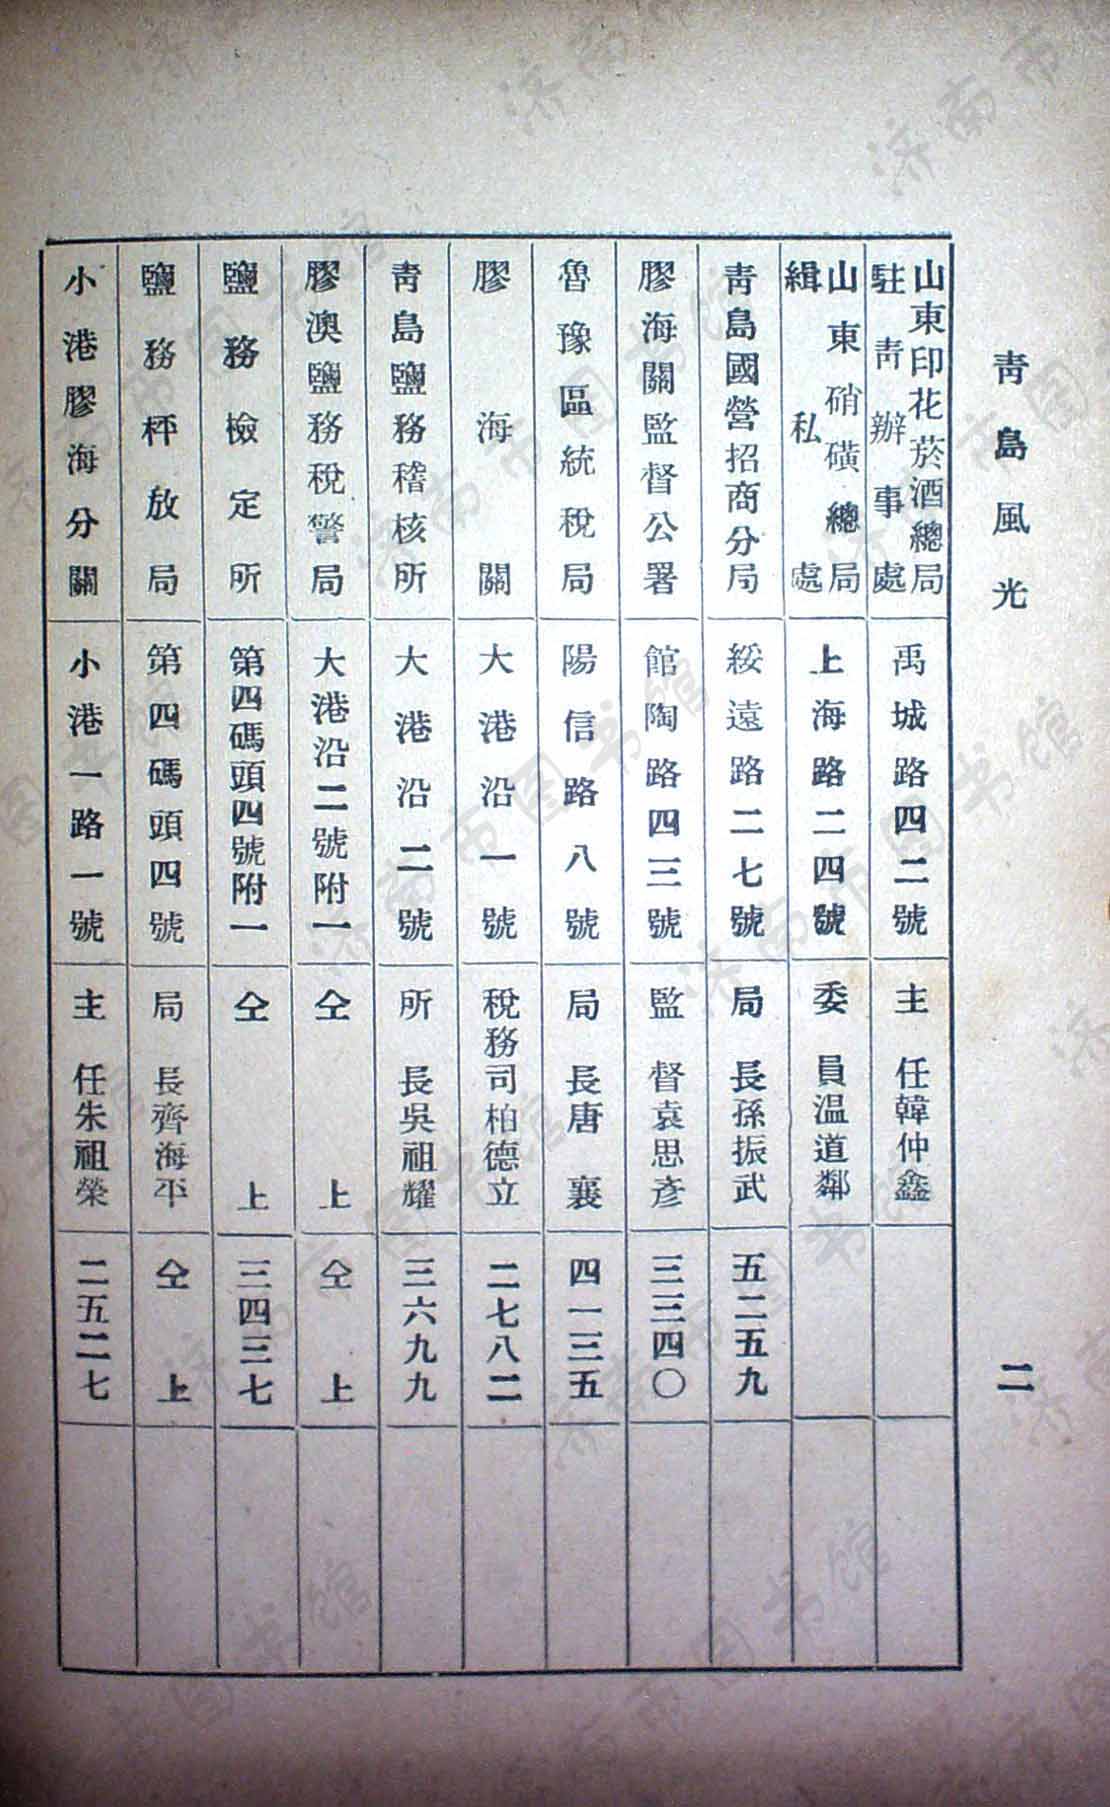 青島風光
二
山東印花菸酒總局駐靑辦事處 禹城路四二號 主任韓仲鑫
山東硝磺總局緝私處 上海路二四號 委員温道鄰
靑島國營招商分局 綏遠路二七號 局長孫振武 五二五九
膠海關監督公署 館陶路四三號 監督袁思彥 三三四〇
魯豫區統稅局 陽信路八號 局長唐襄 四一三五
膠海關 大港沿一號 稅務司柏德立 二七八二
靑島鹽務稽核所 大港沿二號 所長吳祖耀 三六九九
膠澳鹽務稅警局 大港沿二號附一 仝上 仝上
鹽務檢定所 第四碼頭四號附一 仝上 三四三七
鹽務秤放局 第四碼頭四號 局長齊海平 仝上
小港膠海分關 小港一路一號 主任朱祖榮 二五二七
济南市图书馆